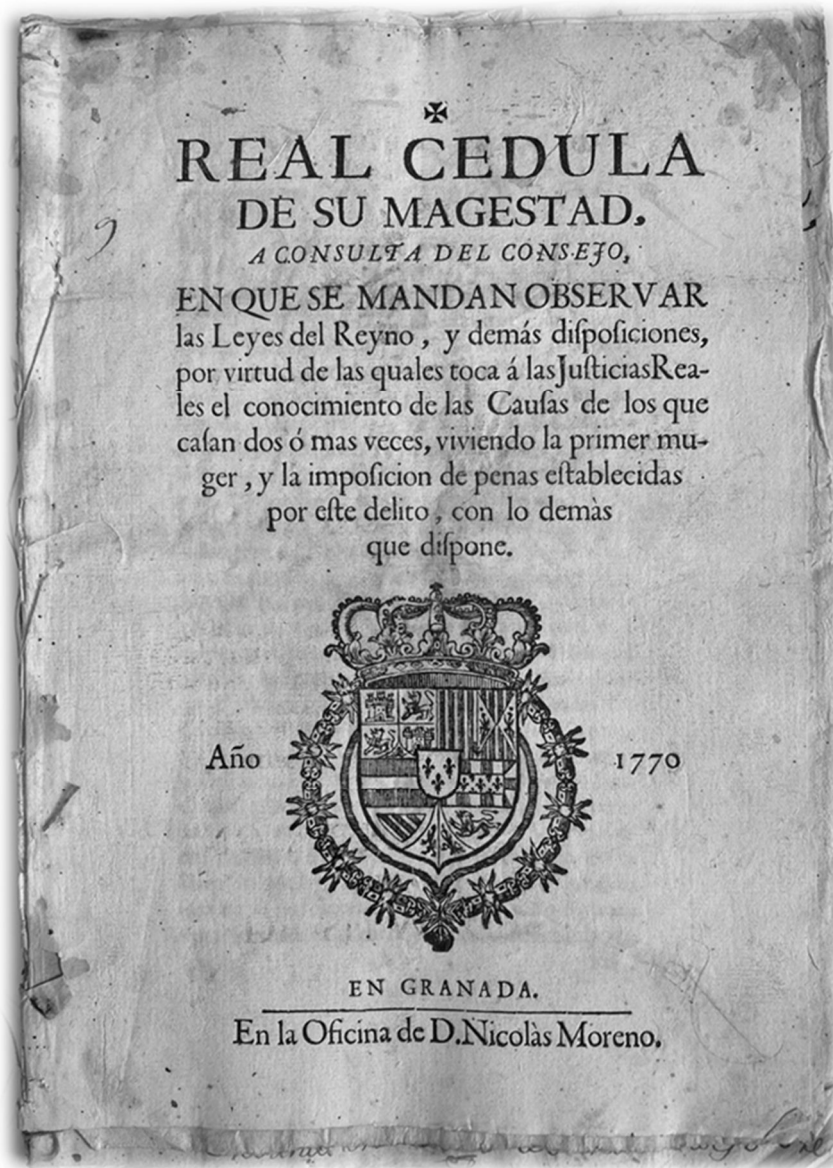 ✠
REAL CEDULA
DE SU MAGESTAD,
A CONSULTA DEL CONSEJO,
EN QUE SE MANDAN OBSERVAR
las Leyes del Reyno, y demás diſpoſiciones,
por virtud de las quales toca á las Juſticias Rea-
les el conocimiento de las Cauſas de los que
caſan dos ó mas veces, viviendo la primer mu-
ger, y la impoſicion de penas eſtablecidas
por eſte delito, con lo demàs
que diſpone.
Año 1770
EN GRANADA.
En la Oficina de D. Nicolàs Moreno.